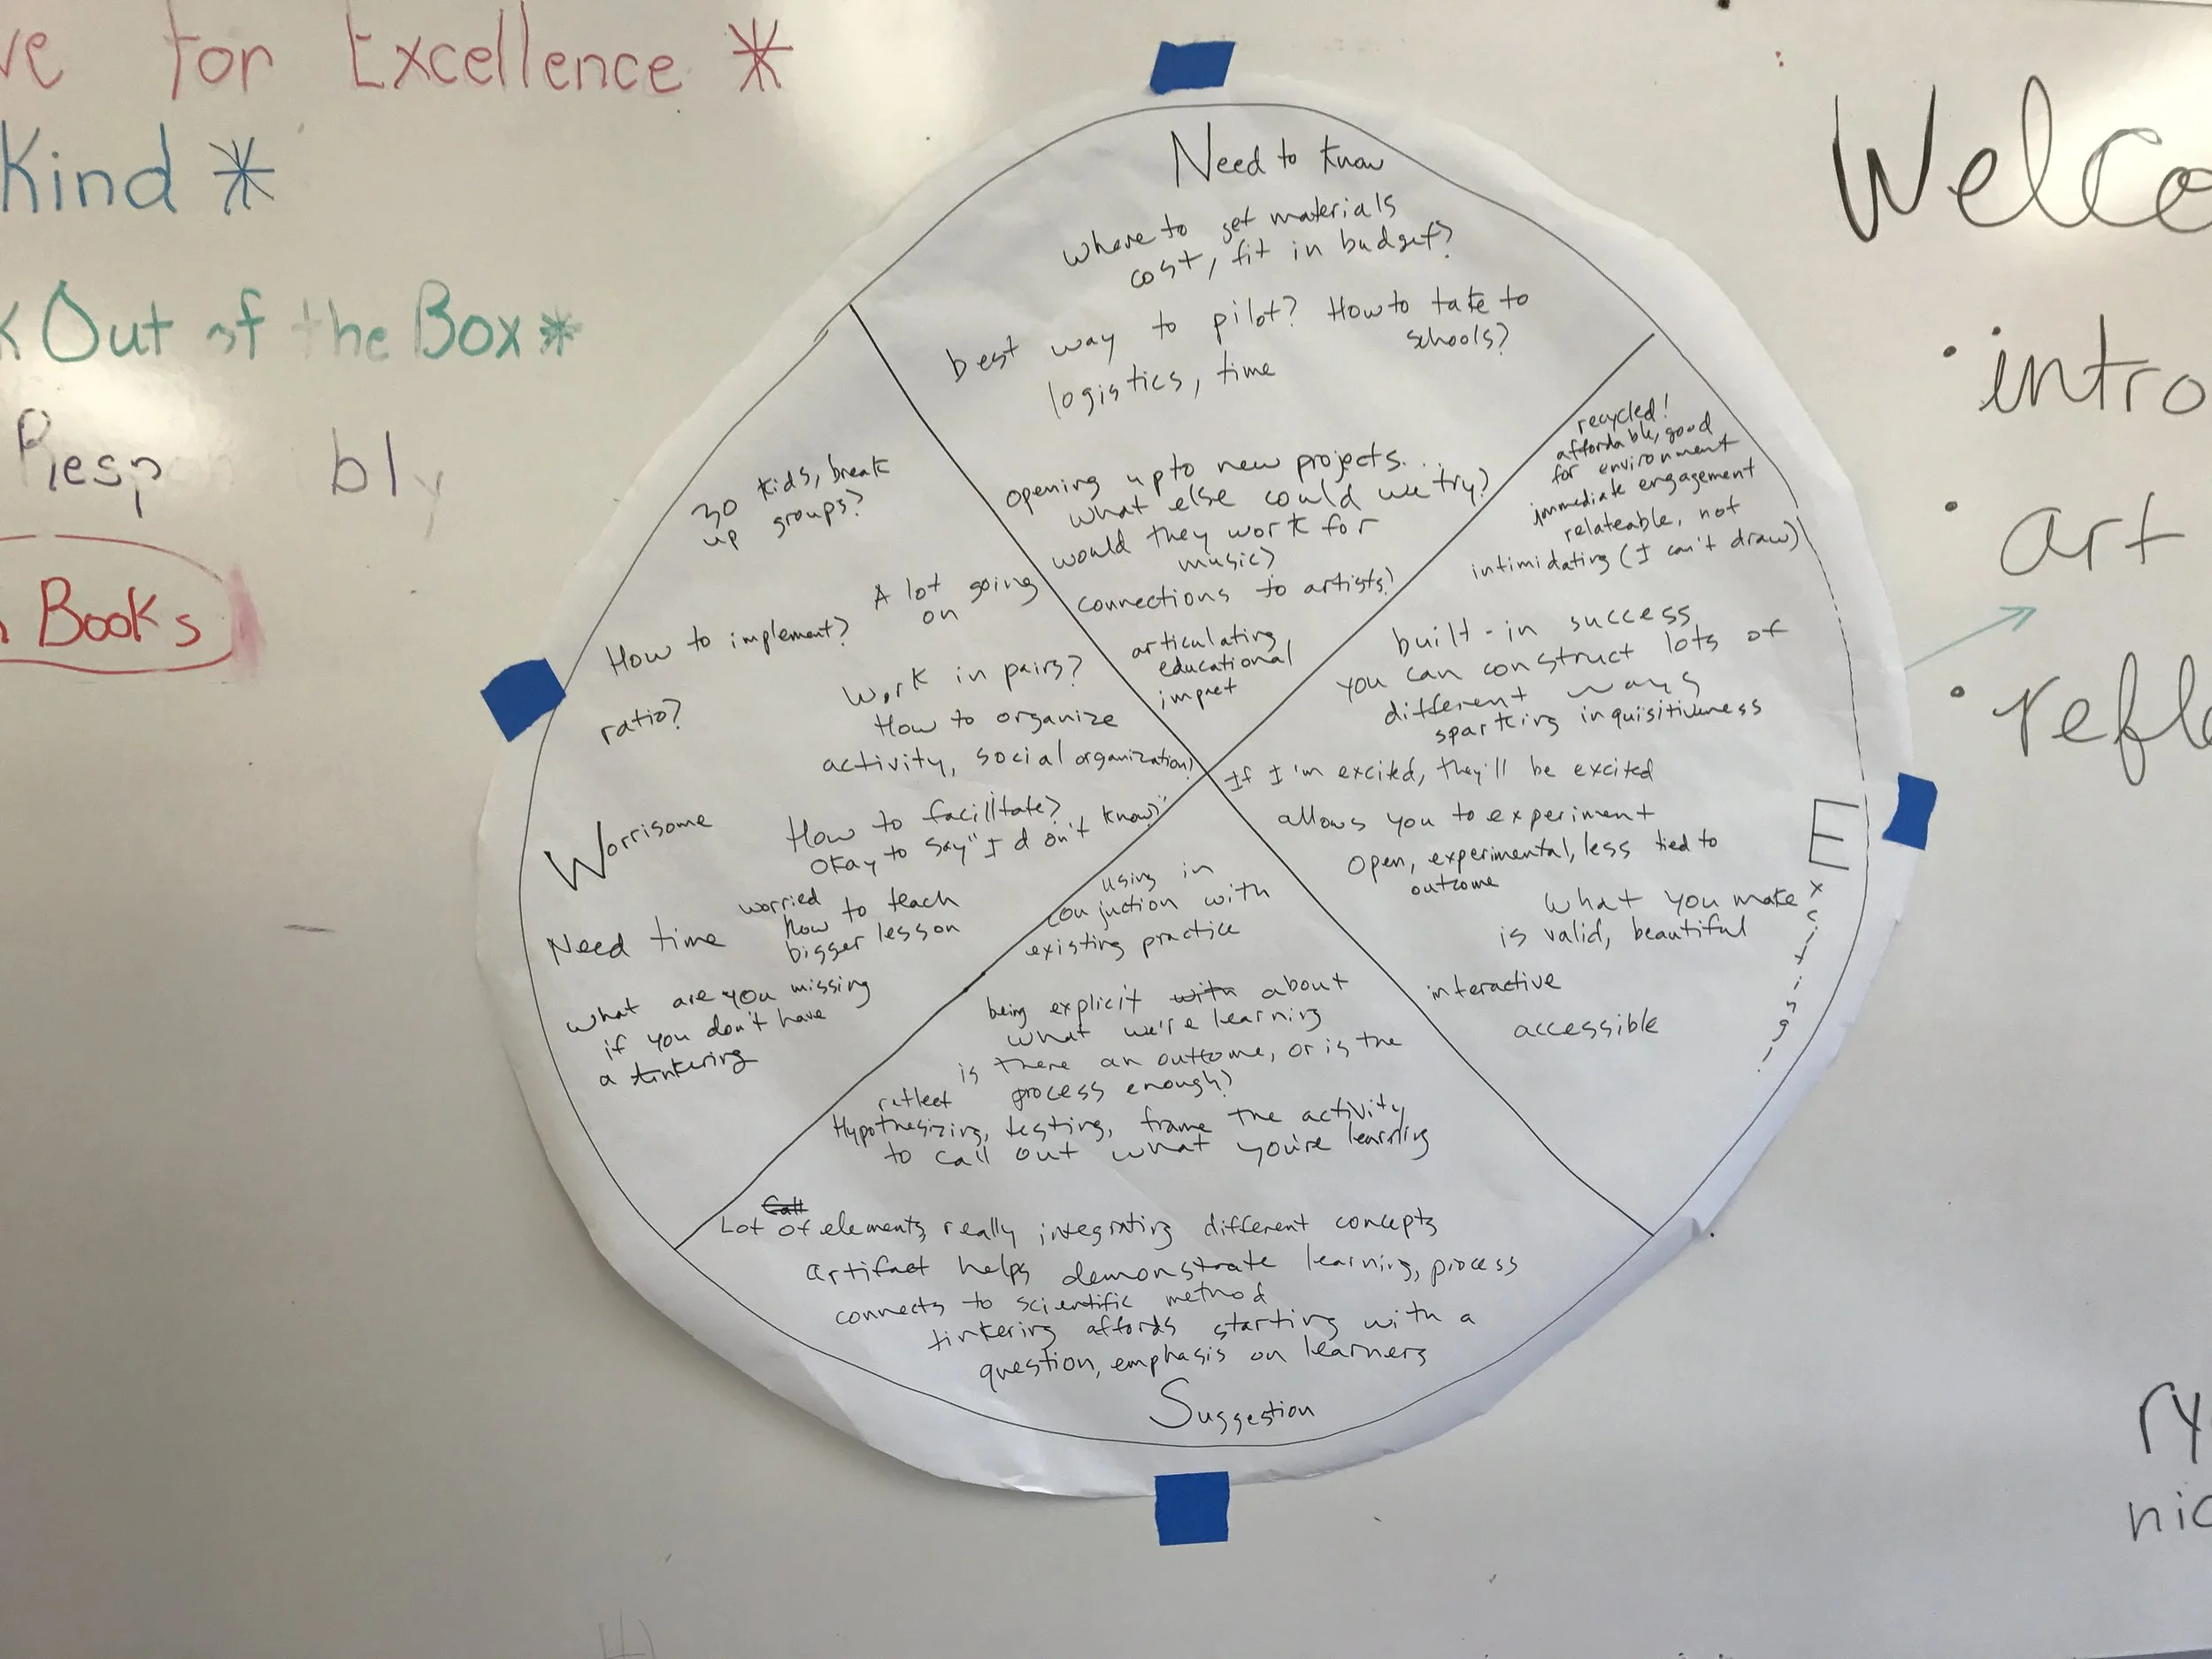 ve for Excellence *
Kind *
k Out of the Box *
Resp bly
Books
Need to know
where to get materials
cost, fit in budget?
best way to pilot? How to take to
schools?
logistics, time
opening up to new projects...
what else could we try?
would they work for
music?
connections to artists?
articulating
educational
impact
recycled!
affordable, good
for environment
immediate engagement
relateable, not
intimidating (I can't draw)
built-in success
you can construct lots of
different ways
sparking inquisitiveness
If I'm excited, they'll be excited
allows you to experiment
open, experimental, less tied to
outcome
what you make
is valid, beautiful
interactive
accessible
Exciting!
30 kids, break
up groups?
A lot going
on
How to implement?
Work in pairs?
ratio?
How to organize
activity, social organization?
Worrisome
How to facilitate?
okay to say "I don't know?"
Need time
worried
how to teach
bigger lesson
what are you missing
if you don't have
a tinkering
using in
conjuction with
existing practice
being explicit with about
what we're learning
is there an outcome, or is the
process enough?
reflect
Hypothesizing, testing, frame the activity
to call out what you're learning
Call
Lot of elements, really integrating different concepts
artifact helps demonstrate learning, process
connects to scientific method
tinkering affords starting with a
question, emphasis on learners
Suggestion
Welco
• intro
• art
• refle
ry
nic